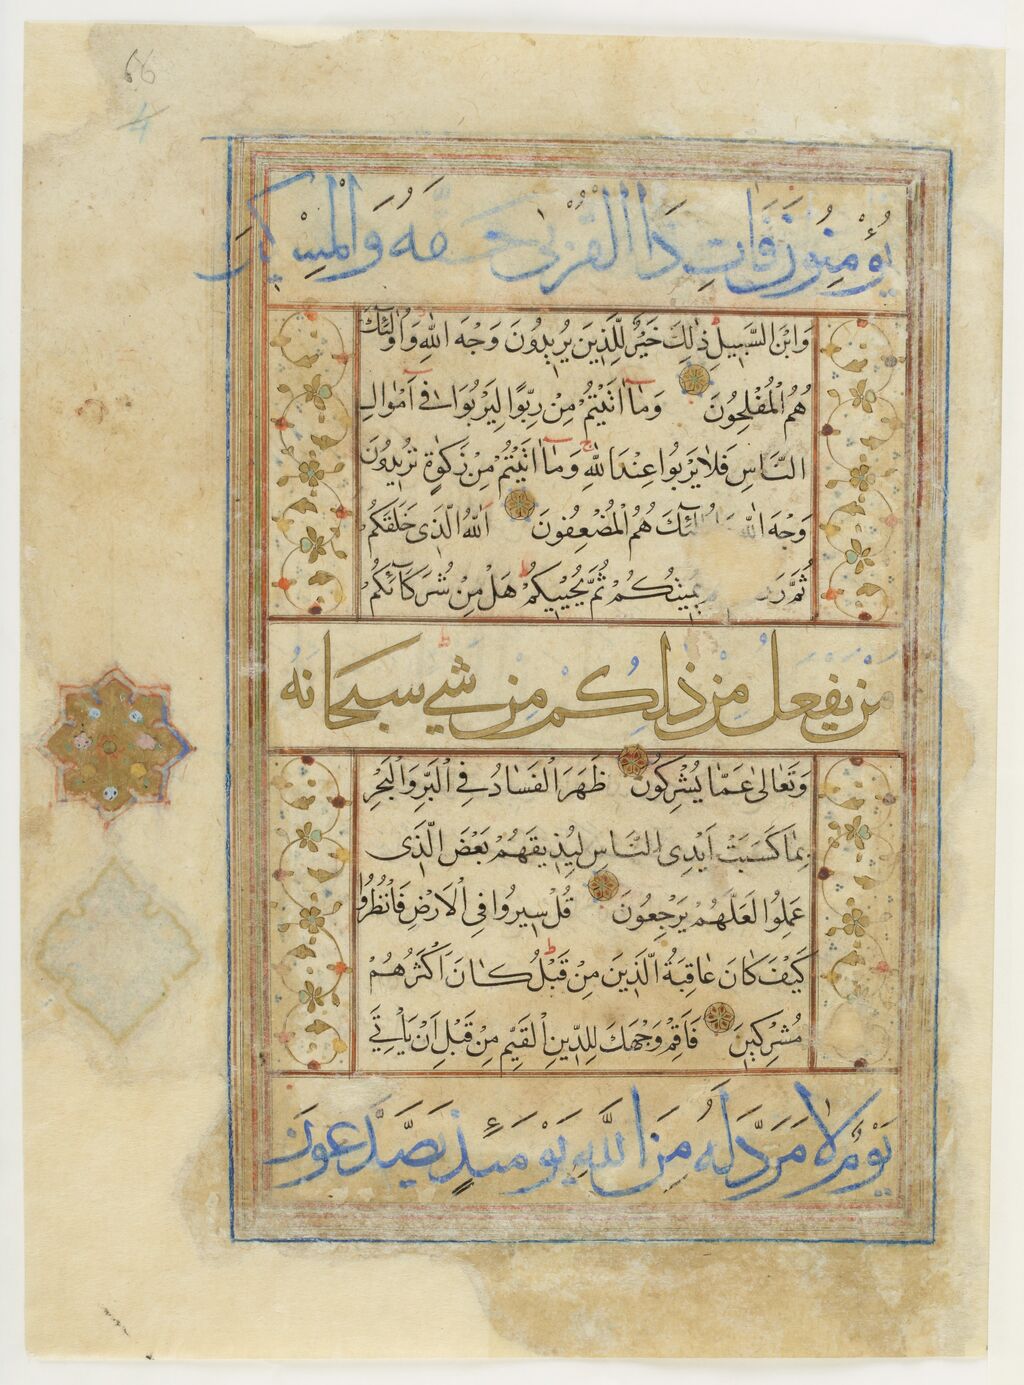 66
4
يُؤْمِنُونَ فَاٰتِ ذَا الْقُرْبٰى حَقَّهُ وَالْمِسْكِينَ
وَابْنَ السَّبِيلِ ذٰلِكَ خَيْرٌ لِلَّذِينَ يُرِيدُونَ وَجْهَ اللّٰهِ وَاُولٰٓئِكَ
هُمُ الْمُفْلِحُونَ وَمَٓا اٰتَيْتُمْ مِنْ رِبًوا لِيَرْبُوَا۬ فِٓى اَمْوَالِ
النَّاسِ فَلَا يَرْبُوا عِنْدَ اللّٰهِ وَمَٓا اٰتَيْتُمْ مِنْ زَكٰوةٍ تُرِيدُونَ
وَجْهَ اللّٰهِ لٰٓئِكَ هُمُ الْمُضْعِفُونَ اَللّٰهُ الَّذِى خَلَقَكُمْ
ثُمَّ رَ يُمِيتُكُمْ ثُمَّ يُحْيِيكُمْ هَلْ مِنْ شُرَكَٓائِكُمْ
مَنْ يَفْعَلُ مِنْ ذٰلِكُمْ مِنْ شَىْ سبحانه
وَتَعَالٰى عَمَّا يُشْرِكُونَ ظَهَرَ الْفَسَادُ فِى الْبَرِّ وَالْبَحْرِ
بِمَا كَسَبَتْ اَيْدِى النَّاسِ لِيُذِيقَهُمْ بَعْضَ الَّذِى
عَمِلُوا لَعَلَّهُمْ يَرْجِعُونَ قُلْ سِيرُوا فِى الْاَرْضِ فَانْظُرُوا
كَيْفَ كَانَ عَاقِبَةُ الَّذِينَ مِنْ قَبْلُ كَانَ اَكْثَرُهُمْ
مُشْرِكِينَ فَاَقِمْ وَجْهَكَ لِلدِّينِ الْقَيِّمِ مِنْ قَبْلِ اَنْ يَأْتِىَ
يَوْمٌ لَا مَرَدَّ لَهُ مِنَ اللّٰهِ يَوْمَئِذٍ يَصَّدَّعُونَ